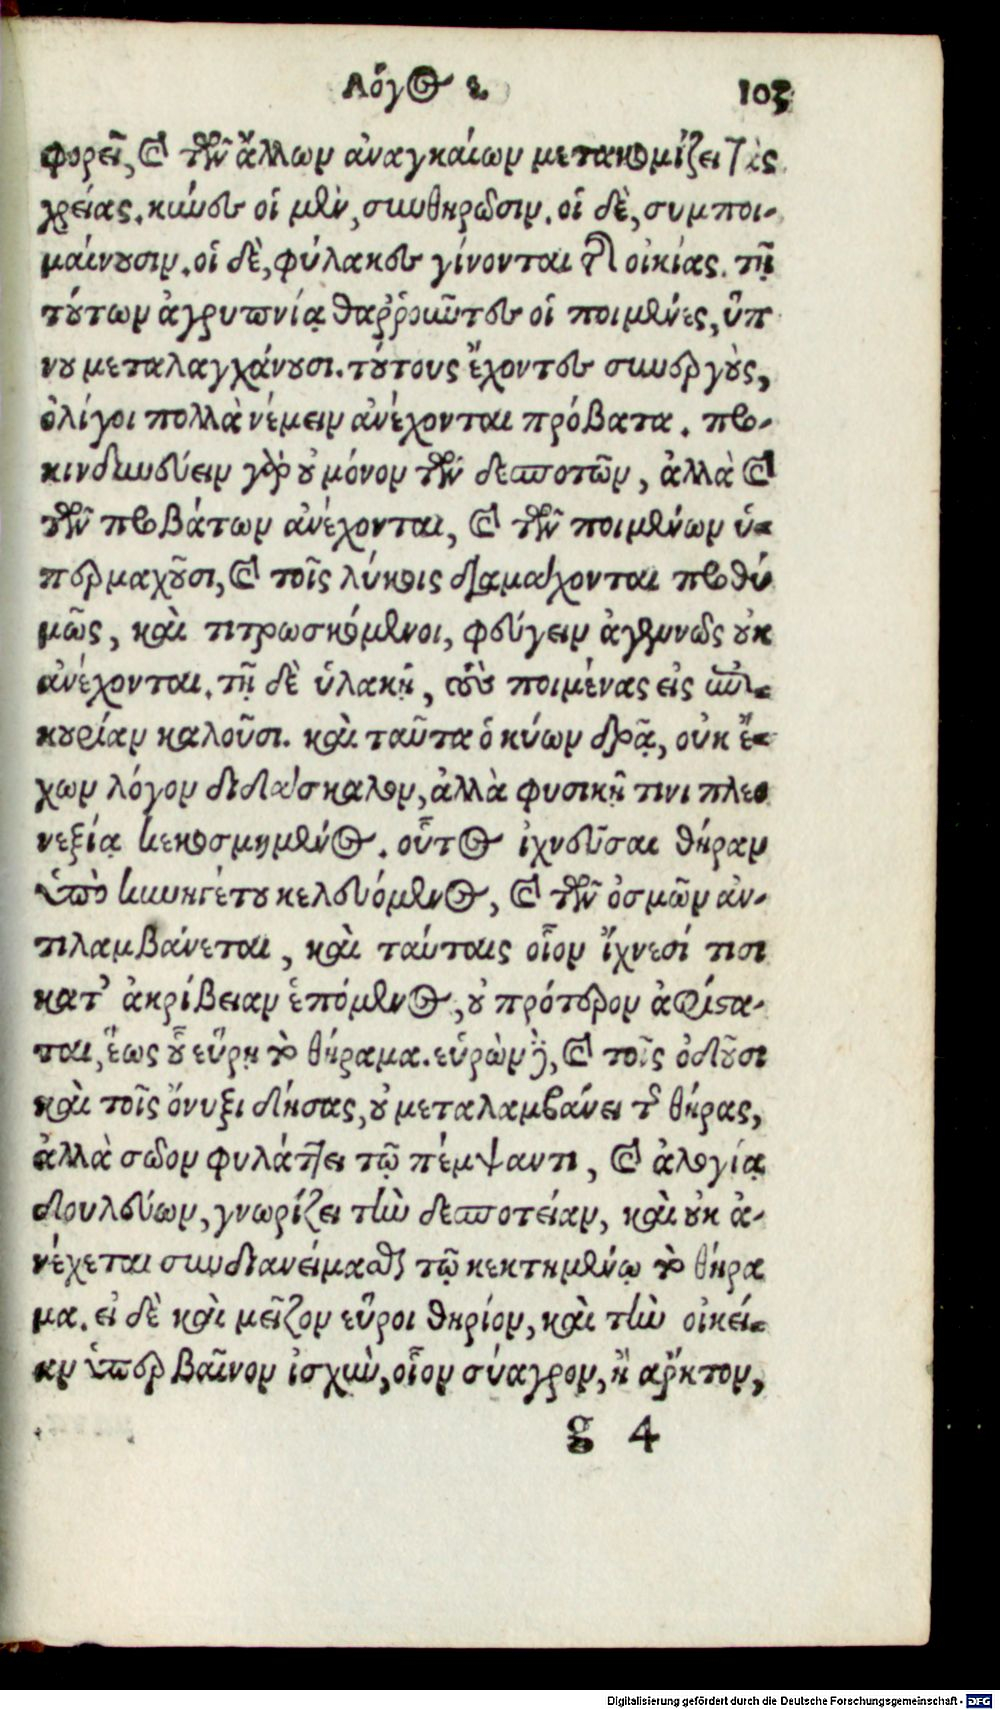 Λόγος ε. 103
φορεῖ, καὶ τῶν ἄλλων ἀναγκαίων μετακομίζει τὰς
χρείας. κύνες οἱ μὲν, συνθηρῶσιν. οἱ δὲ, συμποι-
μαίνουσιν. οἱ δὲ, φύλακες γίνονται τῆς οἰκίας. τῇ
τούτων ἀγρυπνίᾳ θαῤῥοῦντες οἱ ποιμένες, ὕπ
νου μεταλαγχάνουσι. τούτους ἔχοντες συνεργοὺς,
ὀλίγοι πολλὰ νέμειν ἀνέχονται πρόβατα. προ-
κινδυνεύειν γὰρ οὐ μόνον τῶν δεσποτῶν, ἀλλὰ καὶ
τῶν προβάτων ἀνέχονται, καὶ τῶν ποιμένων ὑ-
περμαχοῦσι, καὶ τοῖς λύκοις διαμάχονται προθύ
μως, καὶ τιτρωσκόμενοι, φεύγειν ἀγεννῶς οὐκ
ἀνέχονται. τῇ δὲ ὑλακῇ, τοὺς ποιμένας εἰς ἐπι-
κουρίαν καλοῦσι. καὶ ταῦτα ὁ κύων δρᾷ, οὐκ ἔ-
χων λόγον διδάσκαλον, ἀλλὰ φυσικῇ τινι πλεο
νεξίᾳ κεκοσμημένος. οὗτος ἰχνεῦσαι θήραν
ὑπὸ κυνηγέτου κελευόμενος, καὶ τῶν ὀσμῶν ἀν-
τιλαμβάνεται, καὶ ταύταις οἷον ἴχνεσί τισι
κατ' ἀκρίβειαν ἑπόμενος, οὐ πρότερον ἀφίστα-
ται, ἕως οὗ εὕρῃ τὸ θήραμα. εὑρὼν δὲ, καὶ τοῖς ὀδοῦσι
καὶ τοῖς ὄνυξι δήσας, οὐ μεταλαμβάνει τῆς θήρας,
ἀλλὰ σῶον φυλάττει τῷ πέμψαντι, καὶ ἀλογίᾳ
δουλεύων, γνωρίζει τὴν δεσποτείαν, καὶ οὐκ ἀ-
νέχεται συνδιανείμασθαι τῷ κεκτημένῳ τὸ θήρα
μα. εἰ δὲ καὶ μεῖζον εὕροι θηρίον, καὶ τὴν οἰκεί-
αν ὑπερβαῖνον ἰσχὺν, οἷον σύαγρον, ἢ ἄρκτον,
g 4
Digitalisierung gefördert durch die Deutsche Forschungsgemeinschaft - DFG